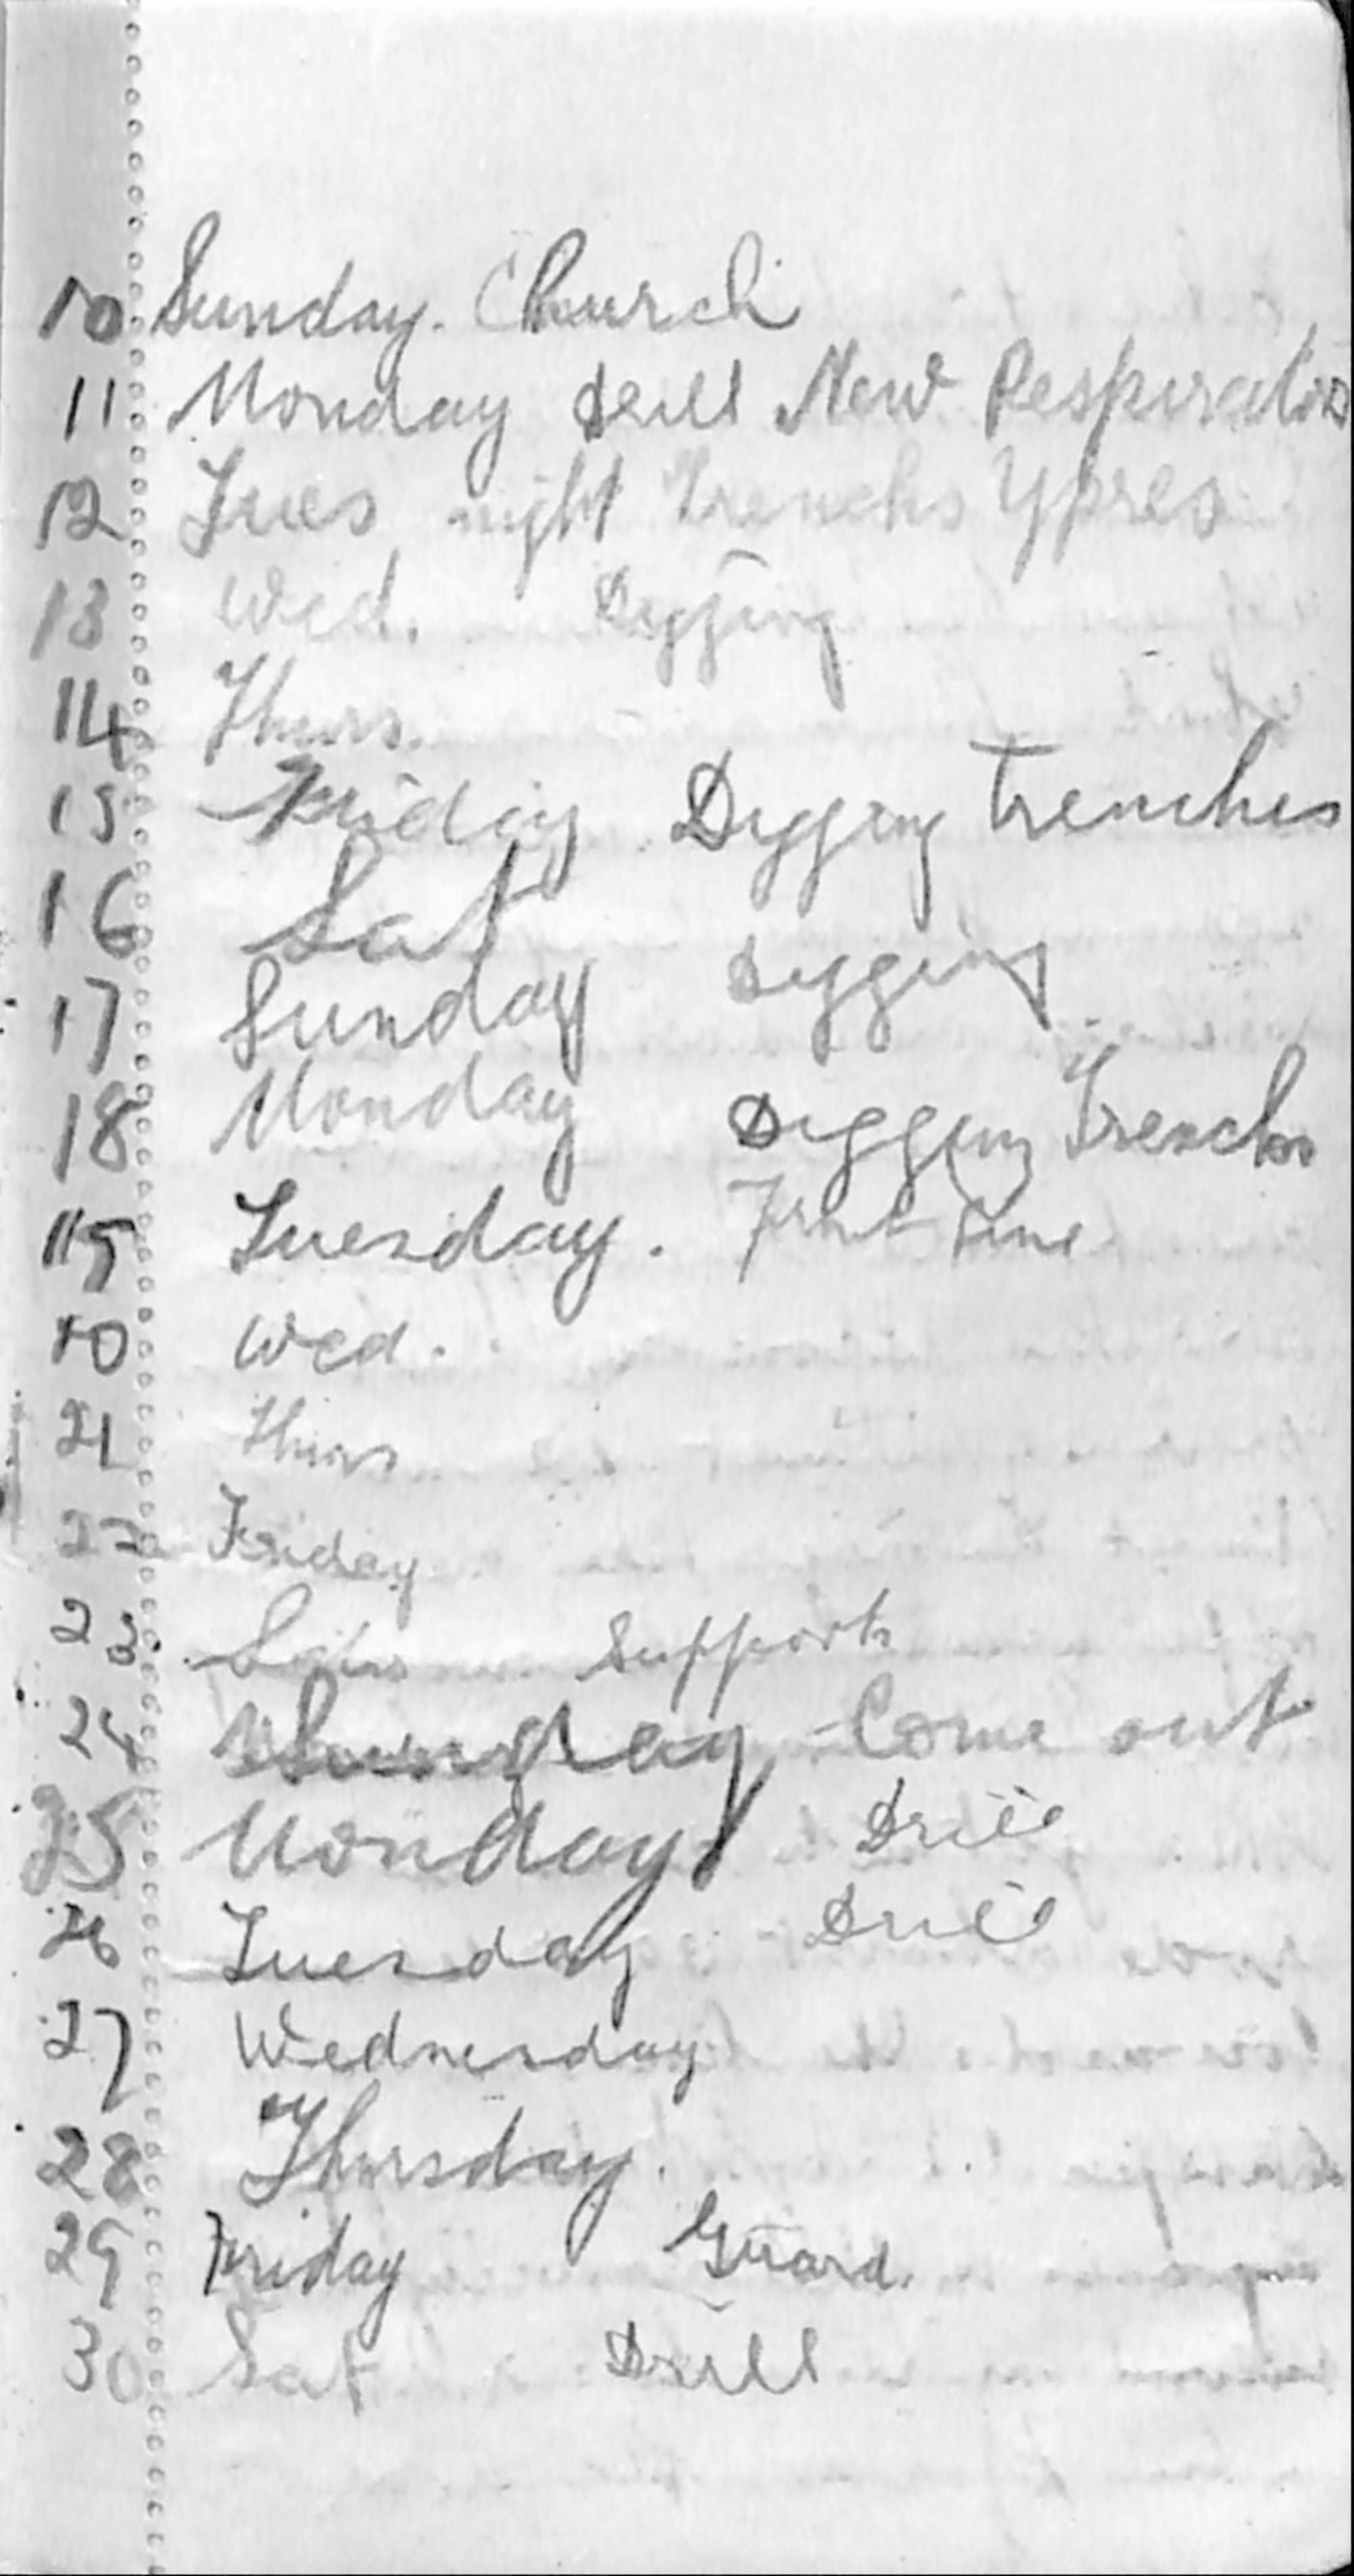 10 Sunday. Church
11 Monday Drill New Respirators
12 Tues night Trenchs Ypres
13 Wed. Digging
14 Thurs.
15 Friday Digging Trenches
16 Sat
17 Sunday Digging
18 Monday Digging Trenchs
19 Tuesday. Front Line
20 Wed.
21 Thurs
22 Friday
23 Supports
24 Sunday Come out
25 Monday Drill
26 Tuesday Drill
27 Wednesday
28 Thursday.
29 Friday Guard.
30 Sat Drill